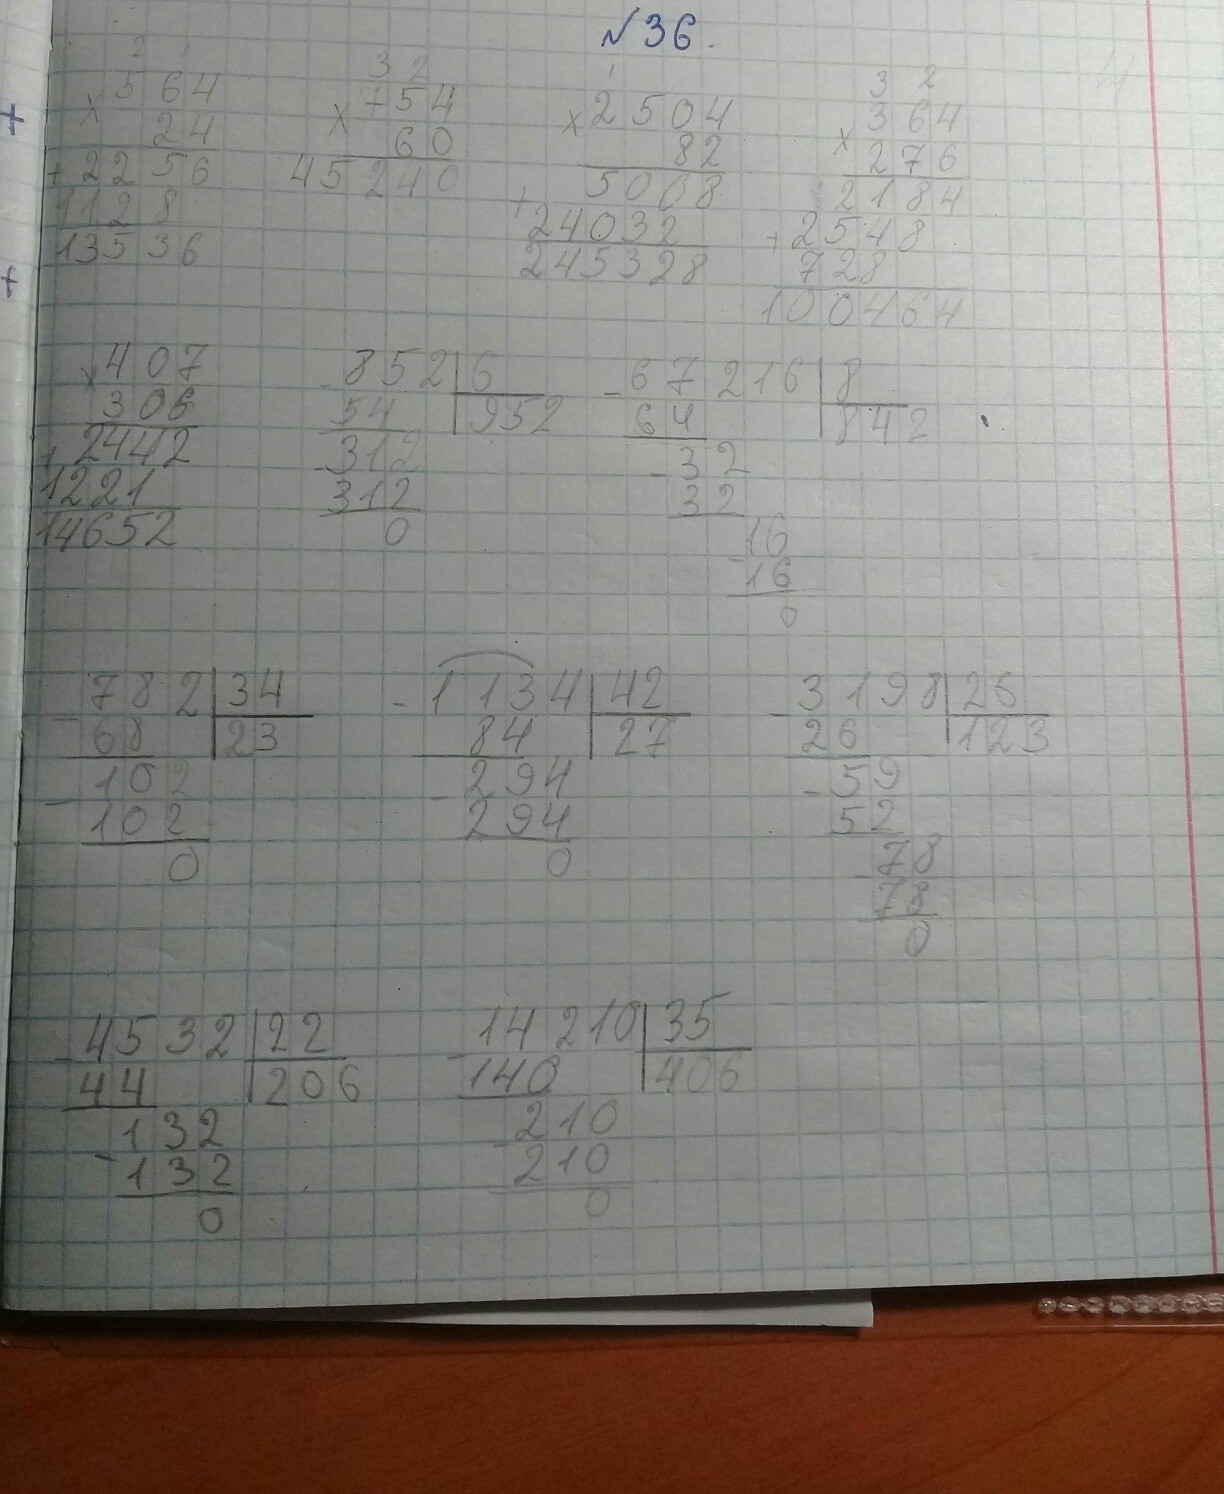 №36.
2
564
×
24
+2256
1128
13536
3 2
754
×
60
45240
1
×2504
82
5008
+
24032
245328
3 2
364
×
276
2184
+2548
728
100464
×407
306
+2442
1221
14652
-852|6
54 |952
-312
312
0
-67216|8
64 |842
-32
32
-16
16
0
-782|34
68 |23
-102
102
0
-1134|42
84 |27
-294
294
0
-3198|26
26 |123
-59
52
78
78
0
-4532|22
44 |206
-132
132
0
-14210|35
140 |406
-210
210
0